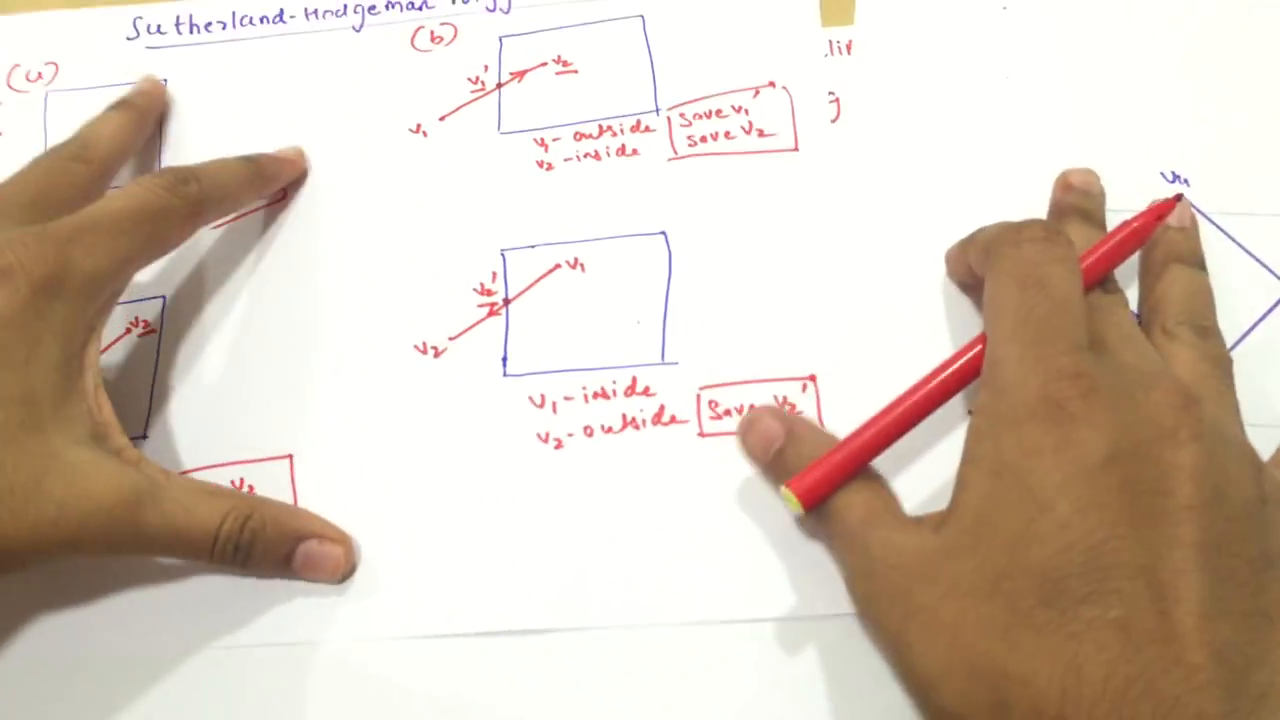 Sutherland-Hodgeman
(a)
(b)
v₁'
v₂
v₁
v₁ - outside
v₂ - inside
save v₁'
save v₂
v₂
v₂'
v₁
v₂
v₁ - inside
v₂ - outside
Save v₂'
v₂
v4